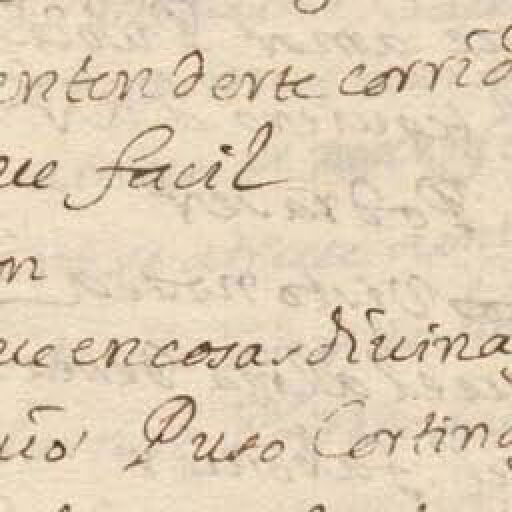 entenderte corrid
ue facil
on
ue en cosas diuina
uio Puso Cortina